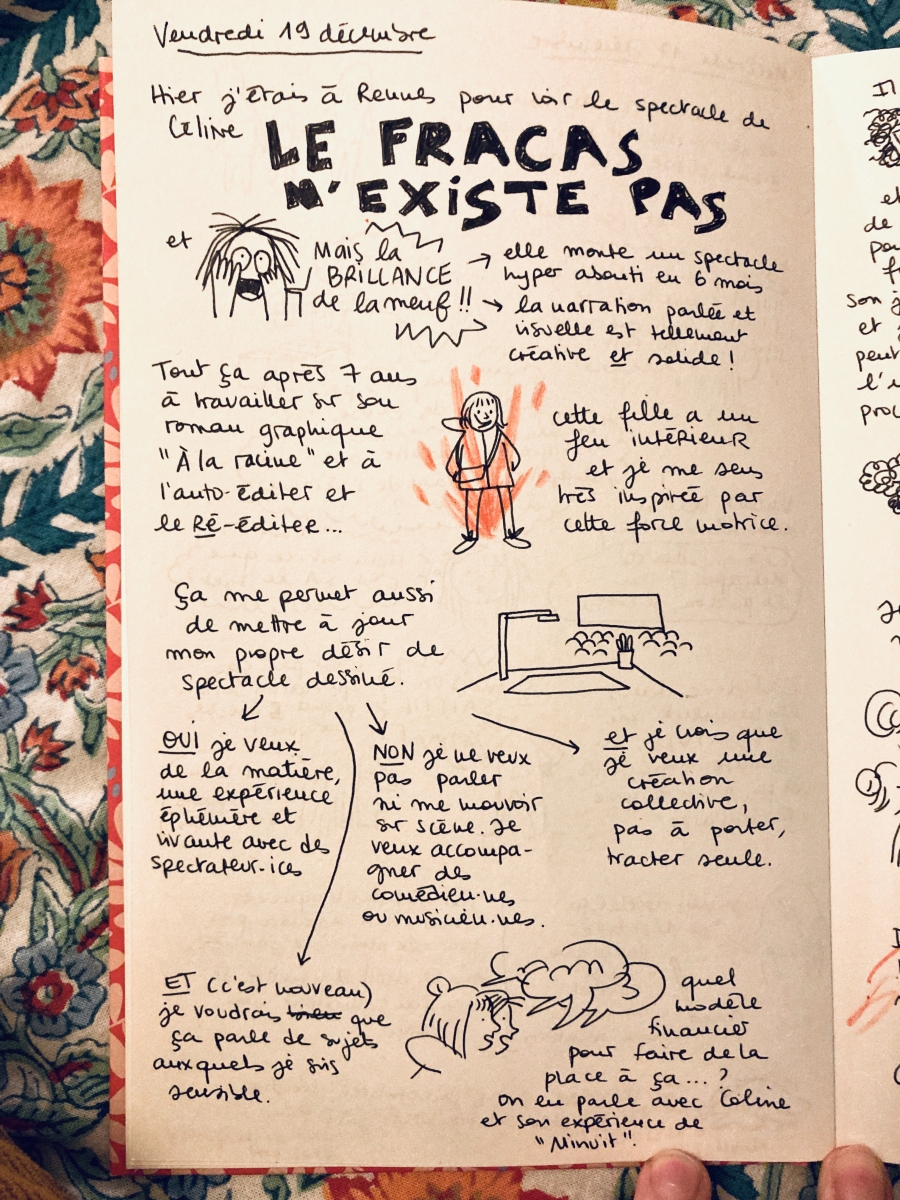 Vendredi 19 décembre
Hier j'étais à Rennes pour voir le spectacle de
Céline
LE FRACAS
N'EXISTE PAS
et
Mais la
BRILLANCE
de la meuf !!
→ elle monte un spectacle
hyper abouti en 6 mois
→ la narration parlée et
visuelle est tellement
créative et solide !
Tout ça après 7 ans
à travailler sr son
roman graphique
"À la racine" et à
l'auto-éditer et
le Ré-éditer...
cette fille a un
feu intérieur
et je me sens
très inspirée par
cette force motrice.
Ça me permet aussi
de mettre à jour
mon propre désir de
spectacle dessiné.
OUI je veux
de la matière,
une expérience
éphémère et
vivante avec des
spectateur·ices
NON je ne veux
pas parler
ni me mouvoir
sr scène. Je
veux accompa-
gner des
comédien·nes
ou musicien·nes.
et je crois que
je veux une
création
collective,
pas à porter,
tracter seule.
ET (c'est nouveau)
je voudrais que
ça parle de sujets
auxquels je suis
sensible.
quel
modèle
financier
pour faire de la
place à ça... ?
On en parle avec Céline
et son expérience de
"Minuit".
Il
et
de
son j
et
peut
l'u
proc